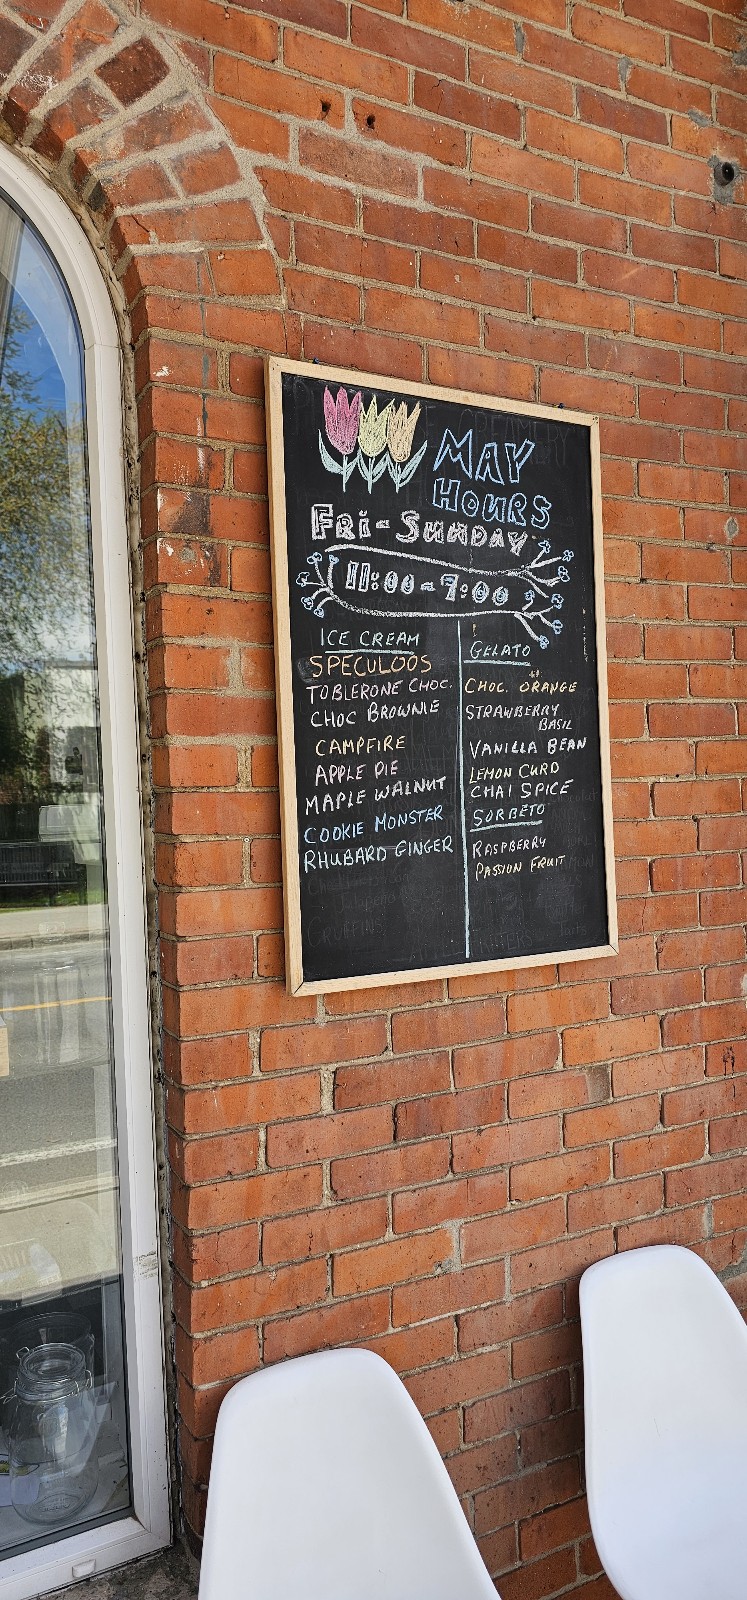 MAY
HOURS
FRI-SUNDAY
11:00-7:00
ICE CREAM
SPECULOOS
TOBLERONE CHOC.
CHOC BROWNIE
CAMPFIRE
APPLE PIE
MAPLE WALNUT
COOKIE MONSTER
RHUBARD GINGER
GELATO
CHOC. ORANGE
STRAWBERRY
BASIL
VANILLA BEAN
LEMON CURD
CHAI SPICE
SORBETO
RASPBERRY
PASSION FRUIT